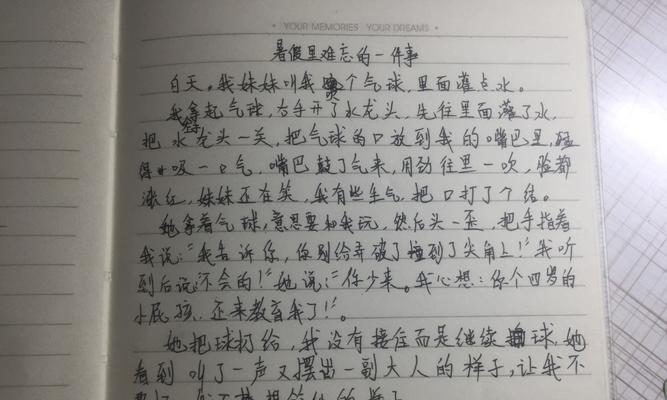 YOUR MEMORIES YOUR DREAMS
暑假里难忘的一件事
白天。我妹妹叫我个气球,里面灌点水。
我拿起气球,右手开了水龙头,先往里面灌了水,
把水龙头一关,把气球的口放到我的嘴巴里,猛
得吸一口气,嘴巴鼓了气来,用劲往里一吹,脸都
涨红,妹妹还在笑,我有些生气,把口打了个结。
她拿着气球,意思要和我玩,然后头一歪,把手指着
我说:“我告诉你,你别给弄破了撞到了尖角上!”我听
到后说“不会的!”她说:“你少来。我心想:你个四岁的
小屁孩,还来教育我了!”。
她把球打给,我没有接住而是继续球,她
看到叫了一声又摆出一副大人的样子,让我不